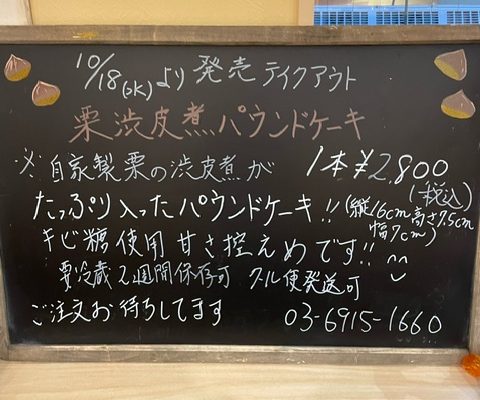 10/18(水)より発売 テイクアウト
栗渋皮煮パウンドケーキ
※自家製栗の渋皮煮が 1本¥2,800
(税込)
たっぷり入ったパウンドケーキ!!(縦16cm高さ7.5cm
幅7cm)
キビ糖使用甘さ控えめです!!
要冷蔵2週間保存可 クール便発送可
ご注文お待ちしてます 03-6915-1660